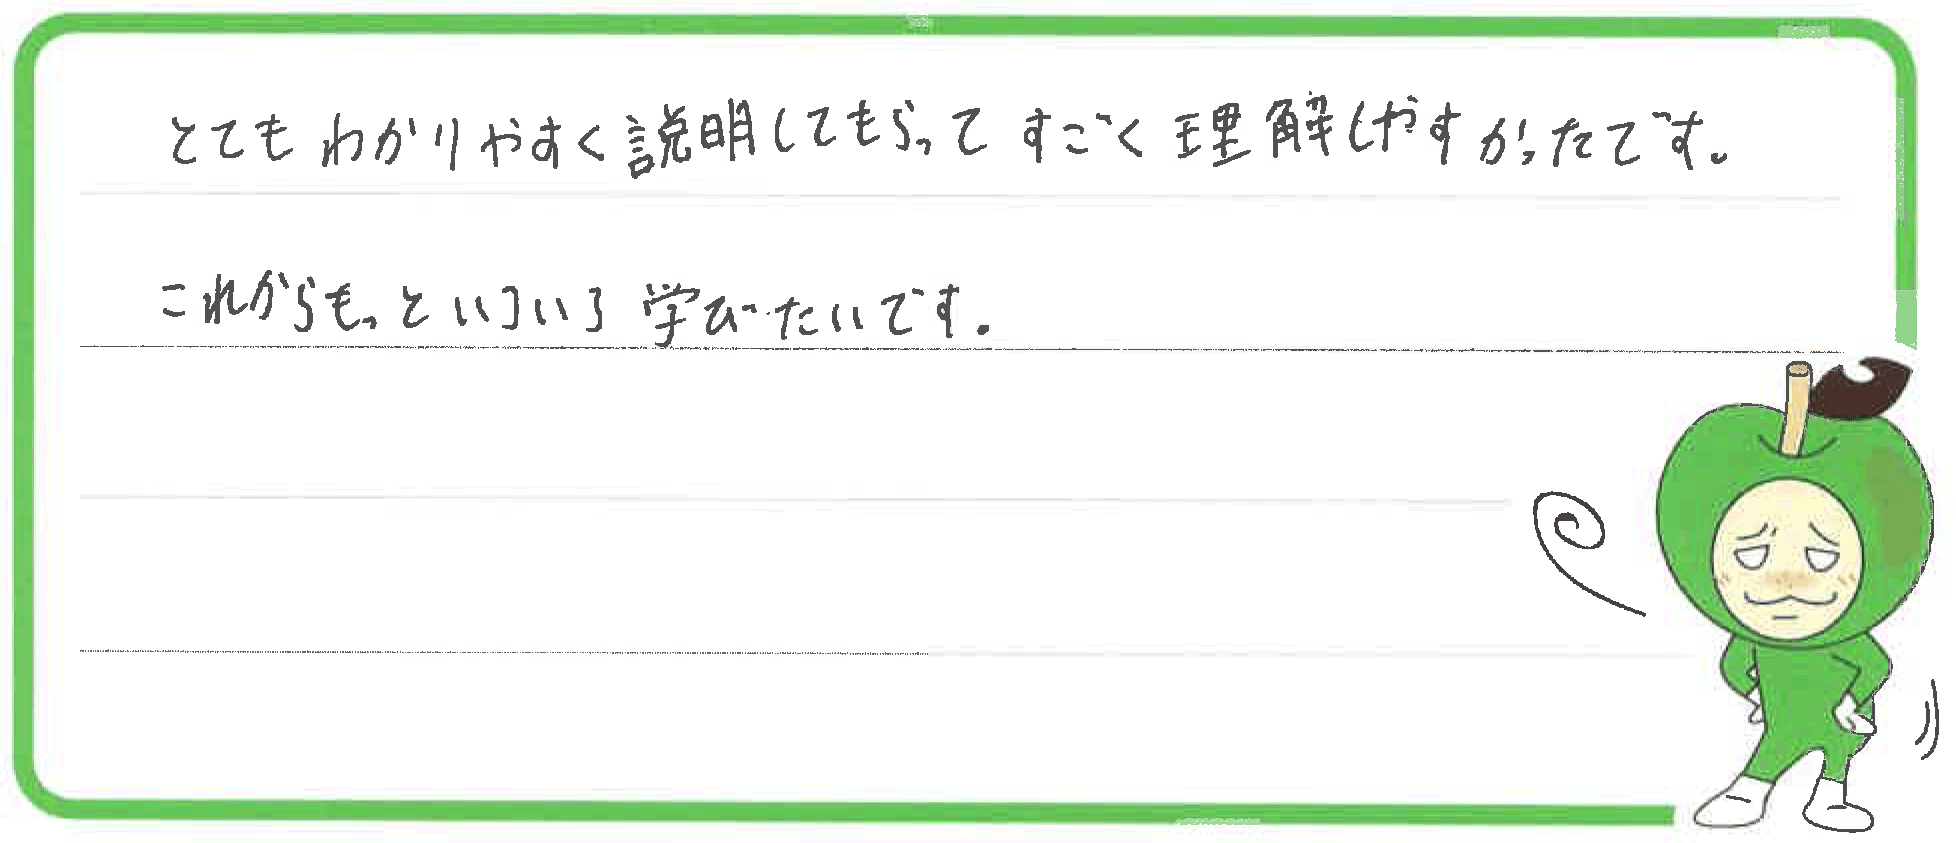 とてもわかりやすく説明してもらって すごく 理解しやすかったです。
これからもっといろいろ 学びたいです.